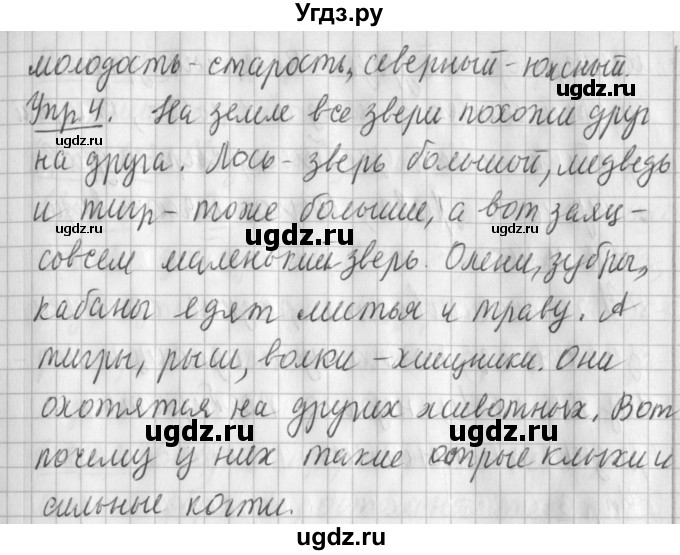 Угдз.ру
молодость - старость, северный - южный.
Упр 4. На земле все звери похожи друг
на друга. Лось - зверь большой, медведь
и тигр - тоже большие, а вот заяц -
совсем маленький зверь. Олени, зубры,
кабаны едят листья и траву. А
тигры, рыси, волки - хищники. Они
охотятся на других животных. Вот
почему у них такие острые клыки и
сильные когти.
ugdz.ru
ugdz.ru
ugdz.ru
ugdz.ru
ugdz.ru
ugdz.ru
ugdz.ru
ugdz.ru
ugdz.ru
ugdz.ru
ugdz.ru
ugdz.ru
ugdz.ru